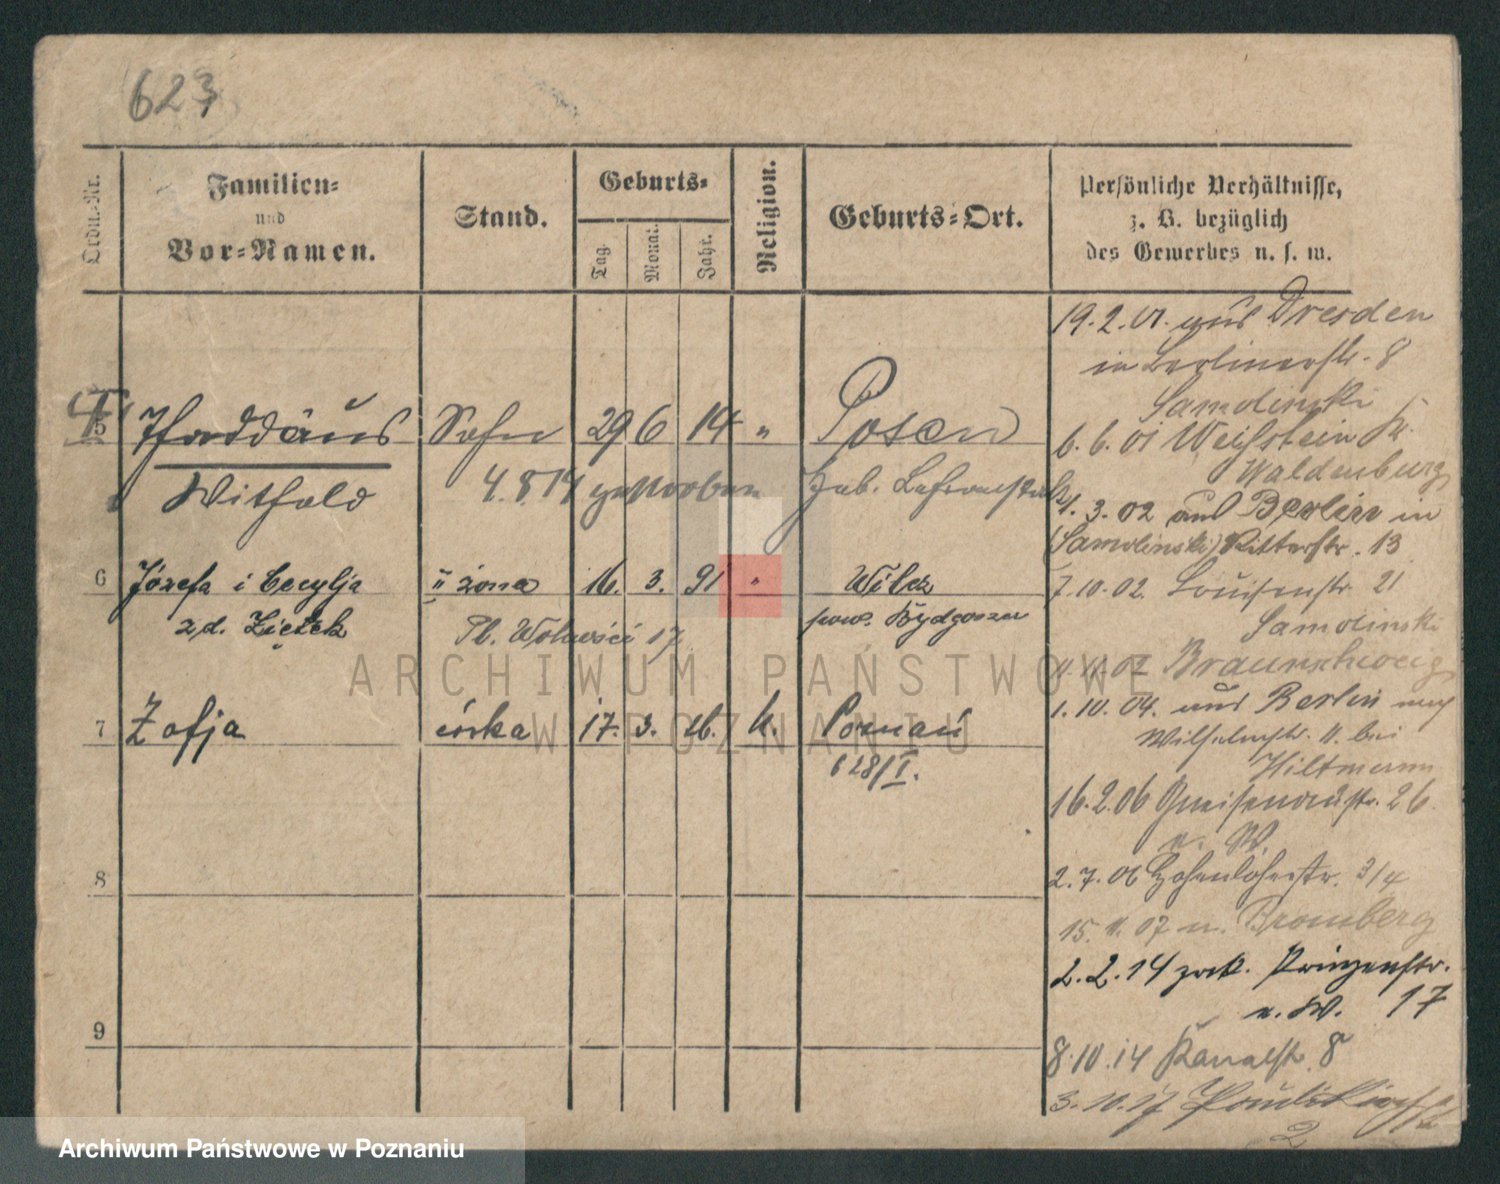 623
Ordn.-Nr.
Familien-
und
Vor-Namen.
Stand.
Geburts-
Tag.
Monat.
Jahr.
Religion.
Geburts-Ort.
Persönliche Verhältnisse,
z. B. bezüglich
des Gewerbes u. s. w.
5 Thaddäus Sohn 29 6 14 " Posen
Withold 4.8.14 gestorben Heb. Lehranstalt
6 Józefa i Cecylja II żona 16. 3. 91 " Wilcz
z d. Ziętek Pl. Wolności 17 pow. Bydgoszcz
7 Zofja córka 17. 3. 26. k. Poznań
628/I.
8
9
19.2.01. aus Dresden
in Berlinerstr. 8
Samolinski
6.6.01 Weißstein Kr.
Waldenburg
1.3.02 aus Berlin in
(Samolinski) Ritterstr. 13
7.10.02 Louisenstr. 21
Samolinski
Braunschweig
1.10.04. aus Berlin nach
Wilhelmstr. 11. bei
Hiltmann
16.2.06 Gneisenaustr. 26
u. W.
2.7.06 Hohenlohestr. 3/4
15.11.07 n. Bromberg
2.2.14 zrck. Prinzenstr.
u. W. 17
8.10.14 Kanalstr. 8
3.10.17 Paulikirchstr.
2
ARCHIWUM PAŃSTWOWE
W POZNANIU
Archiwum Państwowe w Poznaniu